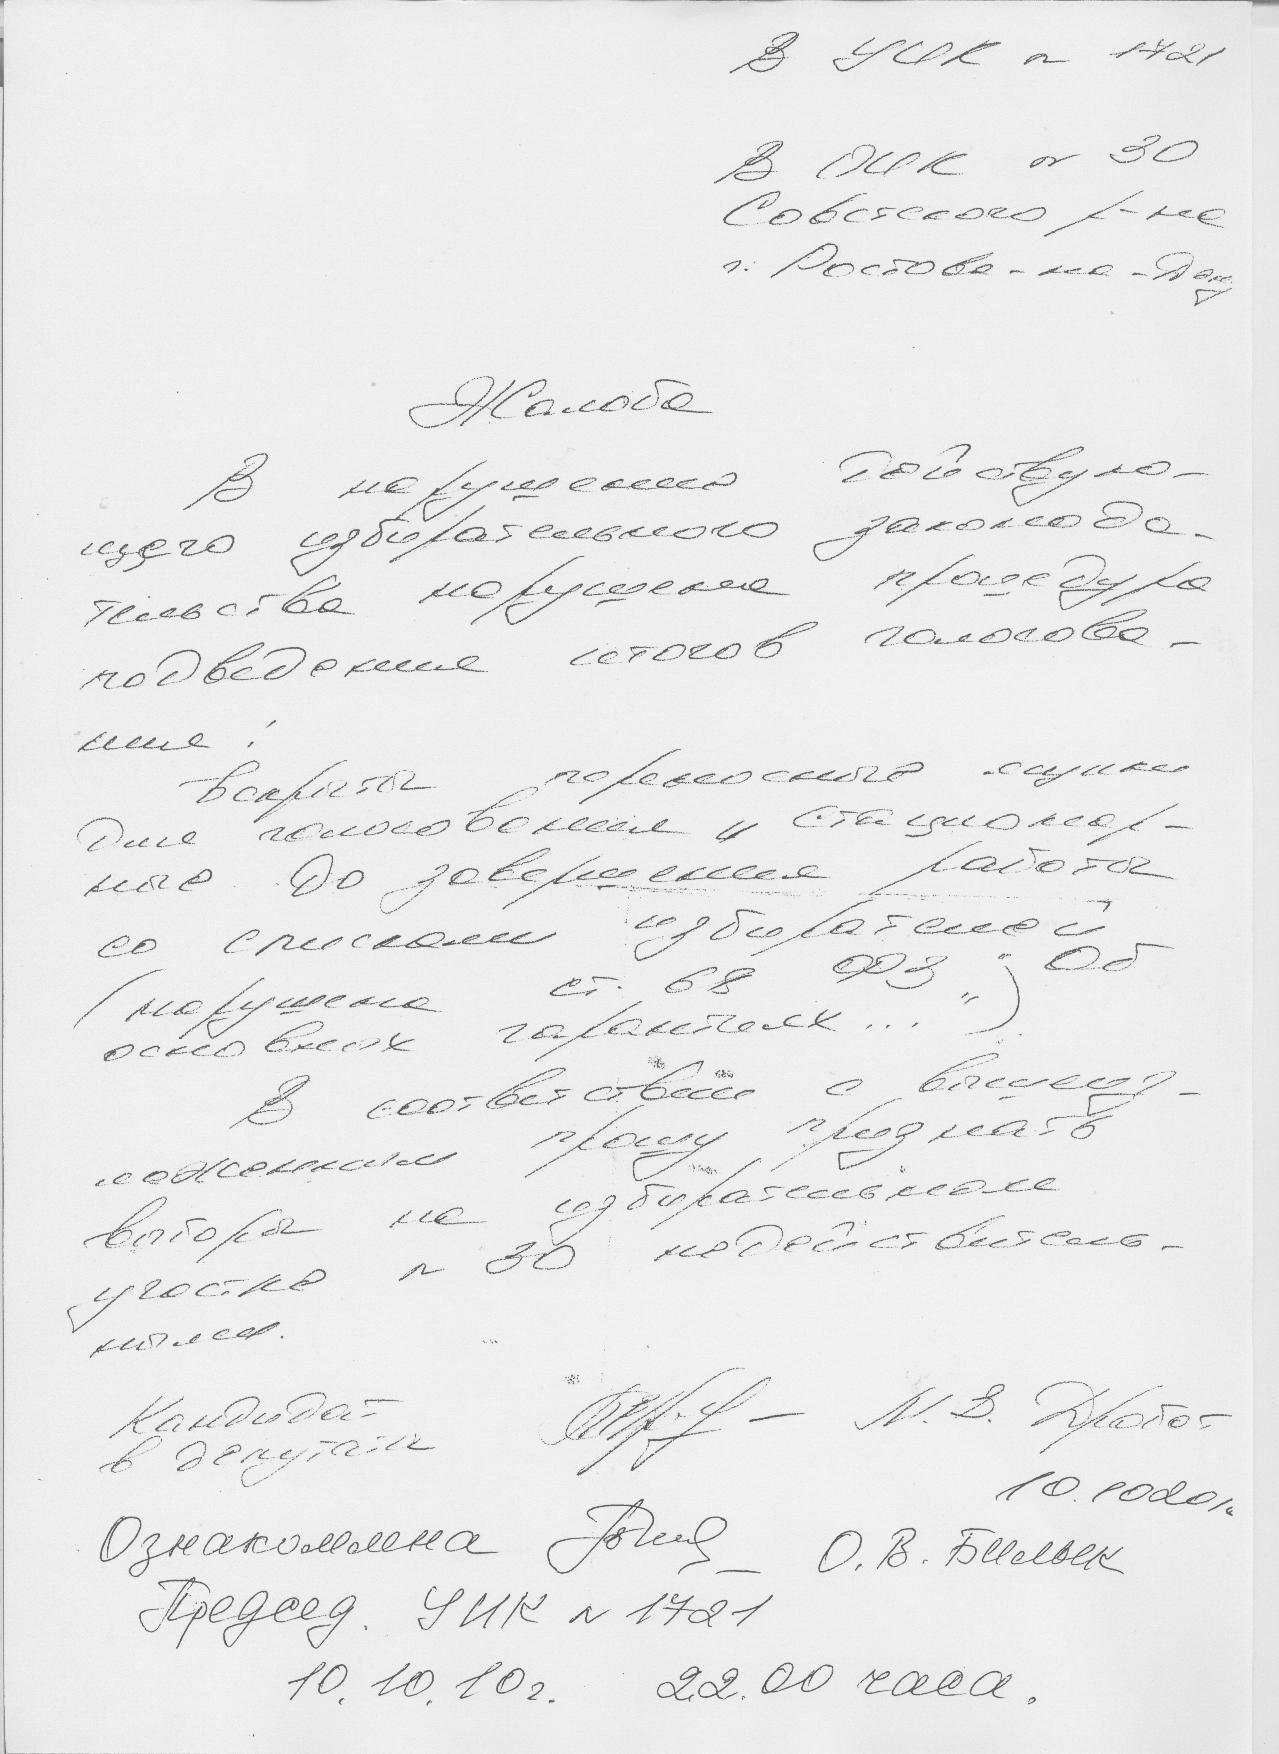 В УИК № 1721
В ОИК № 30
Советского р-на
г. Ростова-на-Дону
Жалоба
В нарушение действую-
щего избирательного законода-
тельства нарушена процедура
подведения итогов голосова-
ния:
вскрыты переносные ящики
для голосования и стационар-
ные до завершения работы
со списками избирателей
(нарушена ст. 68 ФЗ "Об
основных гарантиях...")
В соответствии с вышеиз-
ложенным прошу признать
выборы на избирательном
участке № 30 недействитель-
ными.
Кандидат
в депутаты М. В. Дробот
10.10.2010
Ознакомлена О. В. Билык
Председ. УИК № 1721
10.10.10г. 22.00 часа.